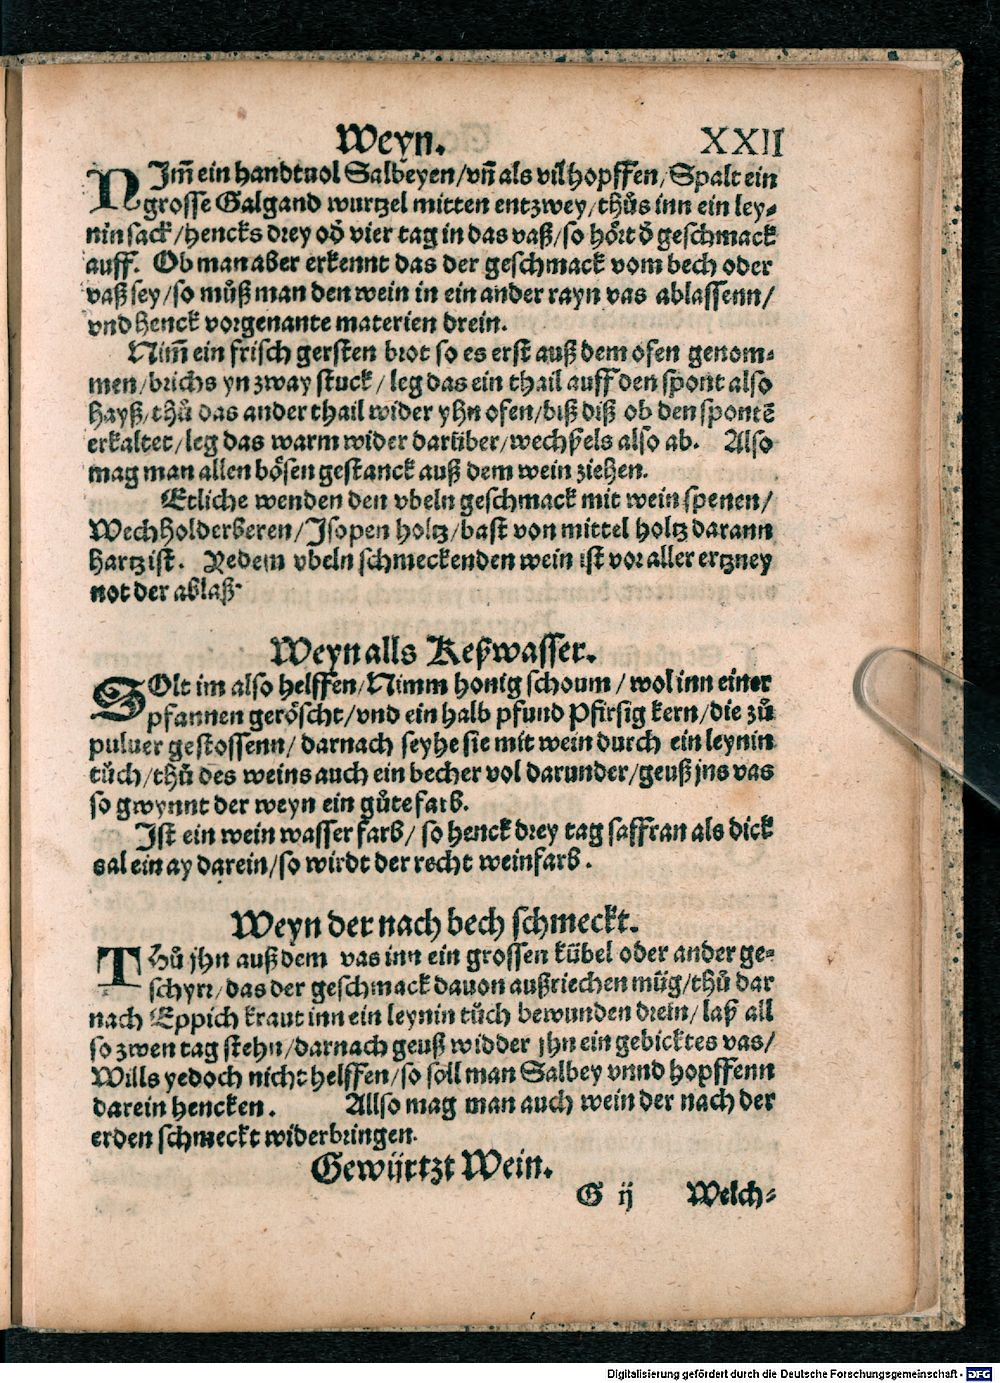 Weyn. XXII
NJm̄ ein handtuol Salbeyen/vn̄ als vil hopffen/Spalt ein
grosse Galgand wurtzel mitten entzwey/thůs inn ein ley-
nin sack/hencks drey od̕ vier tag in das vaß/so hört d̕ geschmack
auff. Ob man aber erkennt das der geschmack vom bech oder
vaß sey/so můß man den wein in ein ander rayn vas ablassenn/
vnd henck vorgenante materien drein.
Nim̄ ein frisch gersten brot so es erst auß dem ofen genom-
men/brichs yn zway stuck/leg das ein thail auff den spont also
hayß/thů das ander thail wider yhn ofen/biß diß ob den spontē
erkaltet/leg das warm wider darüber/wechßels also ab. Also
mag man allen bösen gestanck auß dem wein ziehen.
Etliche wenden den vbeln geschmack mit wein spenen/
Wechholderberen/Jsopen holtz/bast von mittel holtz darann
hartz ist. Yedem vbeln schmeckenden wein ist vor aller ertzney
not der ablaß.
Weyn alls Keßwasser.
SOlt im also helffen/Nimm honig schoum/wol inn einer
pfannen geröscht/vnd ein halb pfund Pfirsig kern/die zů
puluer gestossenn/darnach seyhe sie mit wein durch ein leynin
tůch/thů des weins auch ein becher vol darunder/geuß jns vas
so gwynnt der weyn ein gůte farb.
Jst ein wein wasser farb/so henck drey tag saffran als dick
sal ein ay darein/so wirdt der recht weinfarb.
Weyn der nach bech schmeckt.
THů jhn auß dem vas inn ein grossen kübel oder ander ge-
schyrr/das der geschmack dauon außriechen müg/thů dar
nach Eppich kraut inn ein leynin tůch bewunden drein/laß all
so zwen tag stehn/darnach geuß widder jhn ein gebicktes vas/
Wills yedoch nicht helffen/so soll man Salbey vnnd hopffenn
darein hencken. Allso mag man auch wein der nach der
erden schmeckt widerbringen.
Gewürtzt Wein.
G ij Welch-
Digitalisierung gefördert durch die Deutsche Forschungsgemeinschaft - DFG